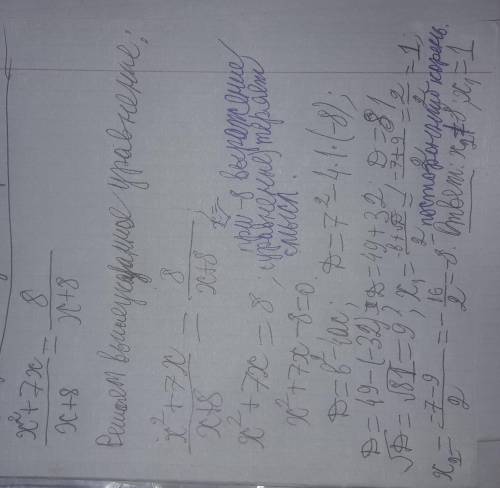 x²+7x / x+8 = 8 / x+8
Решаем вышеуказанное уравнение:
x²+7x / x+8 = 8 / x+8
x²+7x=8, при x=-8 выражение
(уравнение) теряет
смысл.
x²+7x-8=0.
D=b²-4ac; D=7²-4·1·(-8);
D=49-(-32) D=49+32 D=81
√D=√81=9; x₁= -b+√D / 2 = -7+9 / 2 = 2 / 2 =1;
x₂= -7-9 / 2 = - 16 / 2 =-8 - посторонний корень.
Ответ: x₂≠-8; x₁=1